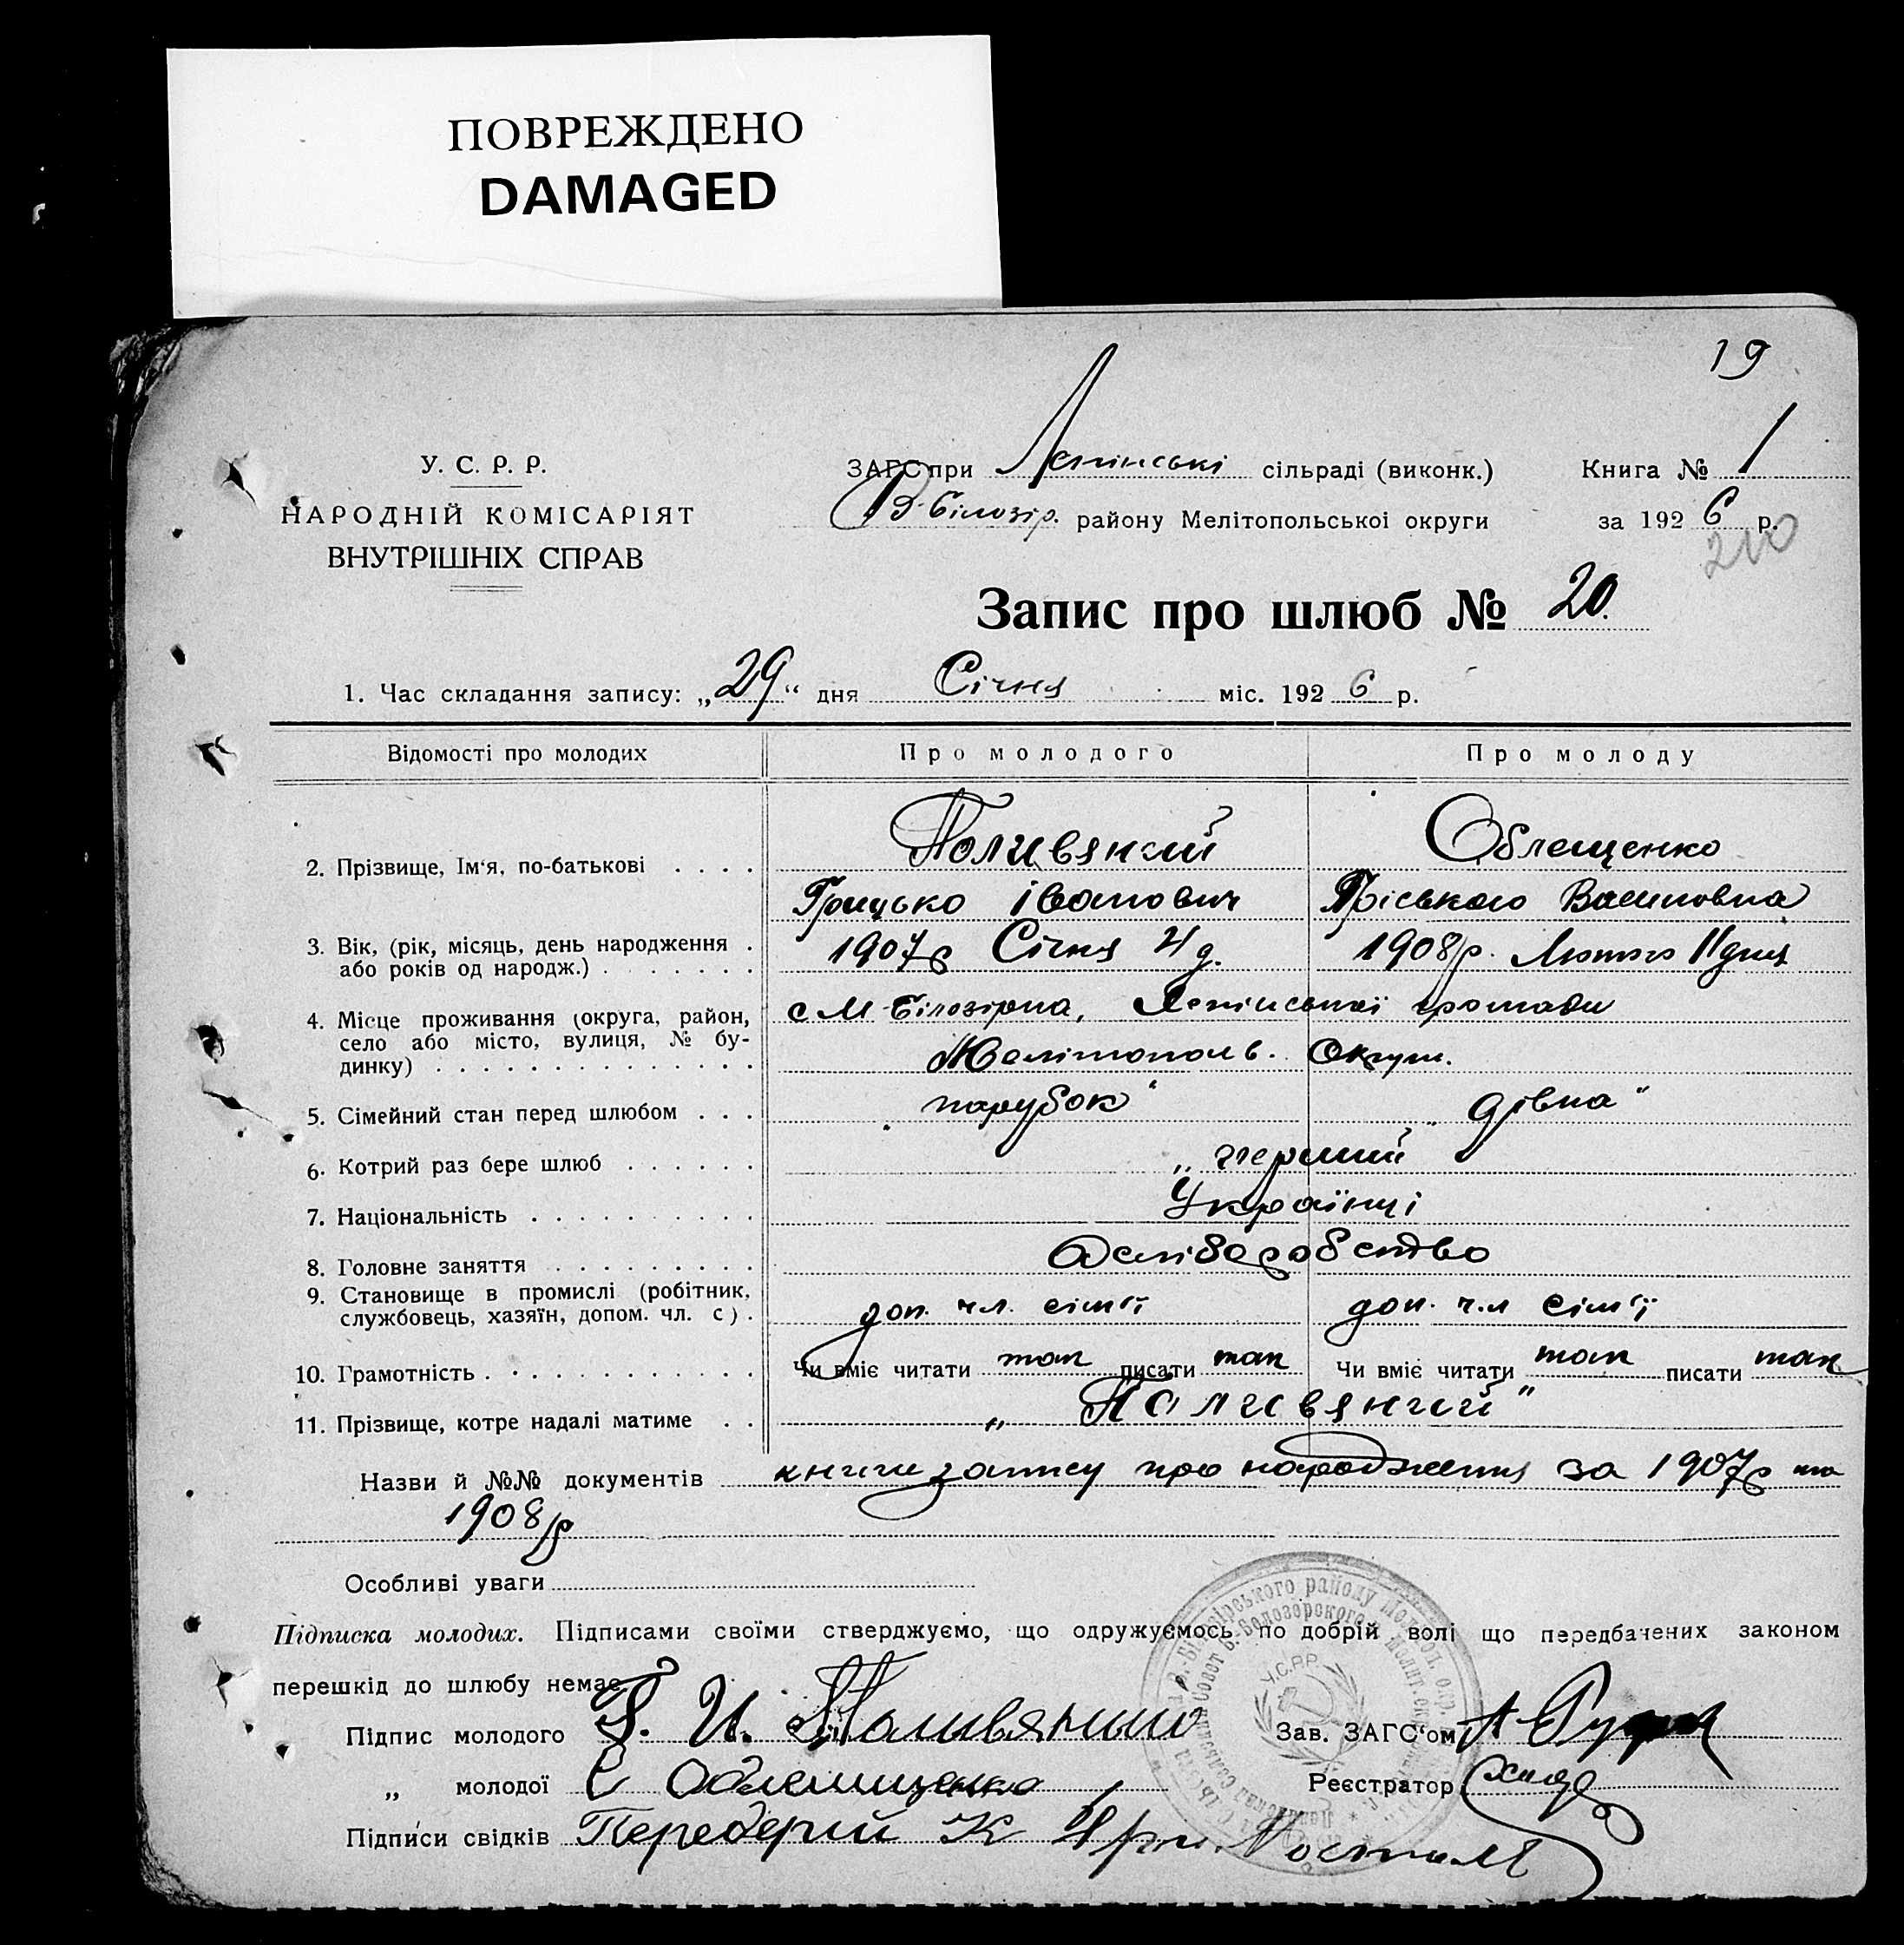 ПОВРЕЖДЕНО
DAMAGED
19
У. С. Р. Р.
НАРОДНІЙ КОМІСАРІЯТ
ВНУТРІШНІХ СПРАВ
ЗАГС при Ленінські сільраді (виконк.) Книга № 1
В-Білозір. району Мелітопольської округи за 1926 р.
210
Запис про шлюб № 20.
1. Час складання запису: „29“ дня Січня міс. 1926 р.
Відомості про молодих Про молодого Про молоду
2. Прізвище, Ім‘я, по-батькові . . . . Поливяний Облещенко
Грицько Іванович Пріська
3. Вік, (рік, місяць, день народження . 1907р Січня 4 д. 1908р. Лютого 11 дня
або років од народж.) . . . . . . .
4. Місце проживання (округа, район, с М-Білозірка, Ленінської громади
село або місто, вулиця, № бу-
динку) . . . . . . . . . . . . . . Мелітополь. Округи.
5. Сімейний стан перед шлюбом . . . парубок" „дівка"
6. Котрий раз бере шлюб . . . . . . „перший
7. Національність . . . . . . . . . . Українці
8. Головне заняття . . . . . . . . . .
9. Становище в промислі (робітник,
службовець, хазяїн, допом. чл. с) . доп. чл. сім'ї доп. ч.л сім'ї
10. Грамотність . . . . . . . . . . . . Чи вміє читати так писати так Чи вміє читати так писати так
11. Прізвище, котре надалі матиме . . „Поливяний"
Назви й №№ документів книги запису про народження за 1907р та
1908р
Особливі уваги
Підписка молодих. Підписами своїми стверджуємо, що одружуємось по добрій волі що передбачених законом
перешкід до шлюбу немає.
Підпис молодого Г. И. Паливяный Зав. ЗАГС‘ом
„ молодої Облещенко Реєстратор
Підписи свідків Передерий К
У.С.Р.Р.